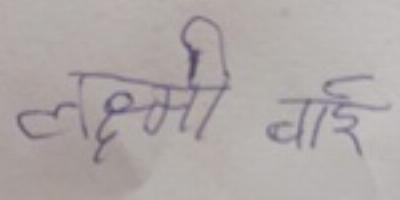 लक्ष्मी वाई